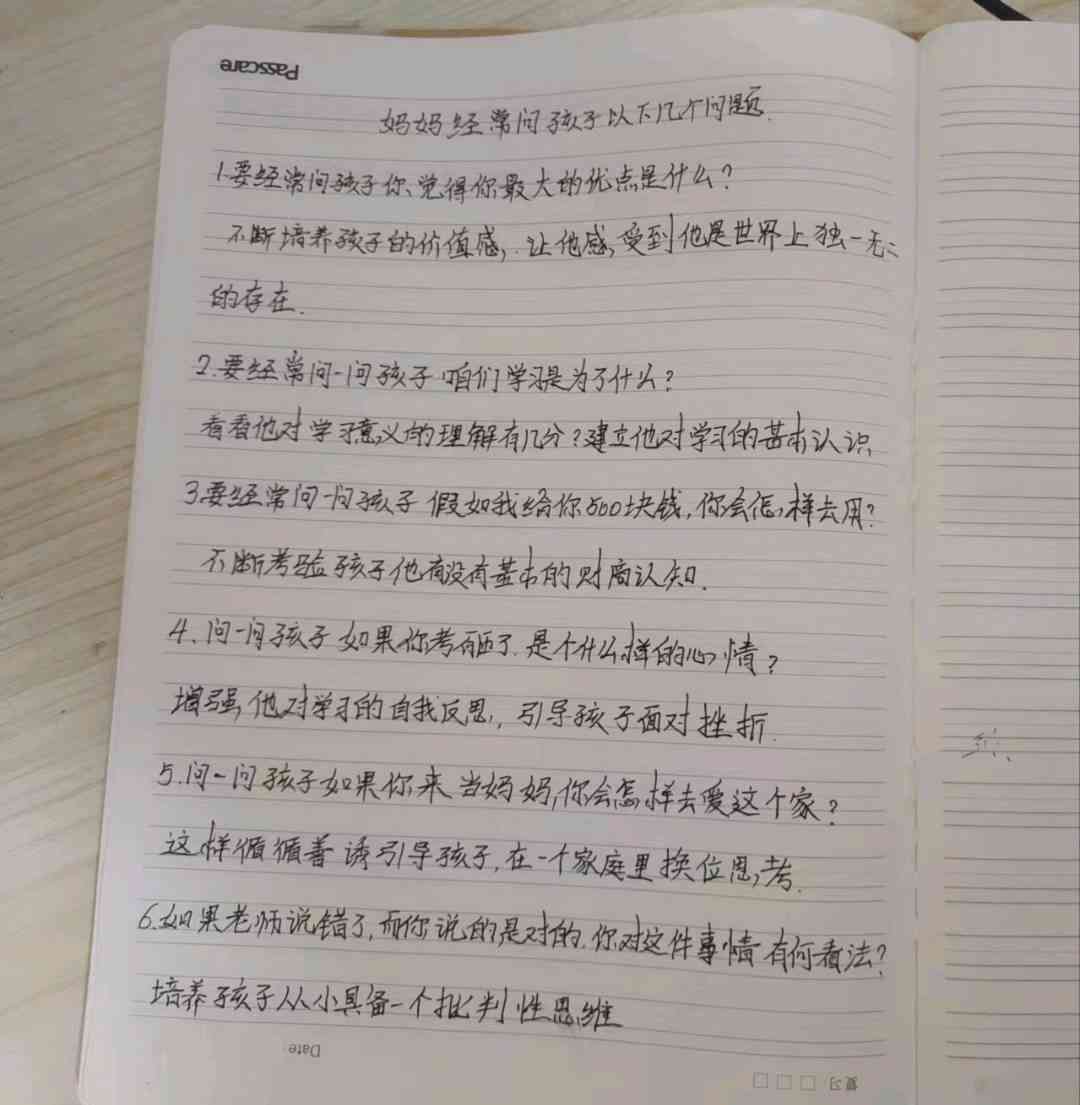 Passcare
妈妈经常问孩子以下几个问题.
1.要经常问孩子你觉得你最大的优点是什么?
不断培养孩子的价值感,让他感受到他是世界上独一无二
的存在.
2.要经常问一问孩子咱们学习是为了什么?
看看他对学习意义的理解有几分?建立他对学习的基本认识
3.要经常问一问孩子假如我给你500块钱,你会怎样去用?
不断考验孩子他有没有基本的财商认知.
4.问一问孩子如果你考砸了.是个什么样的心情?
增强他对学习的自我反思,引导孩子面对挫折.
5.问一问孩子如果你来当妈妈,你会怎样去爱这个家?
这样循循善诱引导孩子,在一个家庭里换位思考.
6.如果老师说错了,而你说的是对的.你对这件事情有何看法?
培养孩子从小具备一个批判性思维
Date
复习